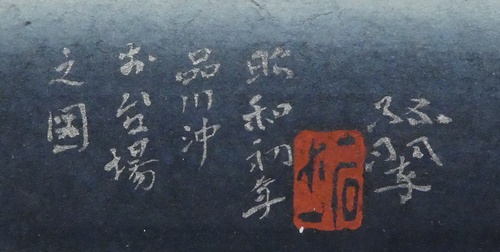 昭和初年
品川沖
お台場
之圖